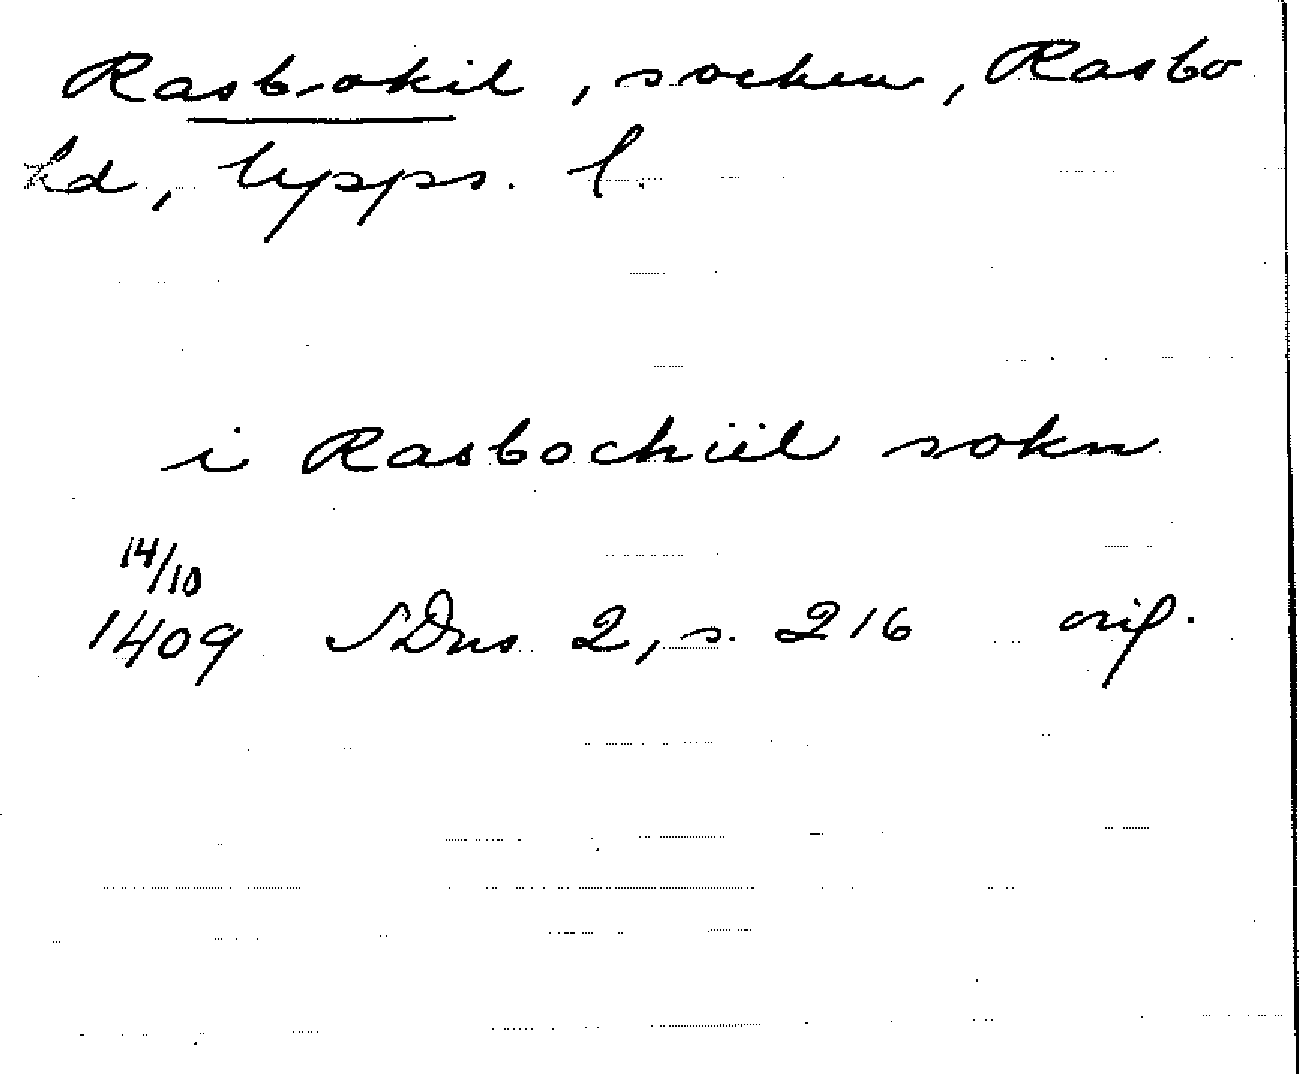 Rasbokil, socken, Rasbo
hd, Upps. l.
i Rasbochiil sokn
14/10
1409 SDns 2, s. 216 orig.